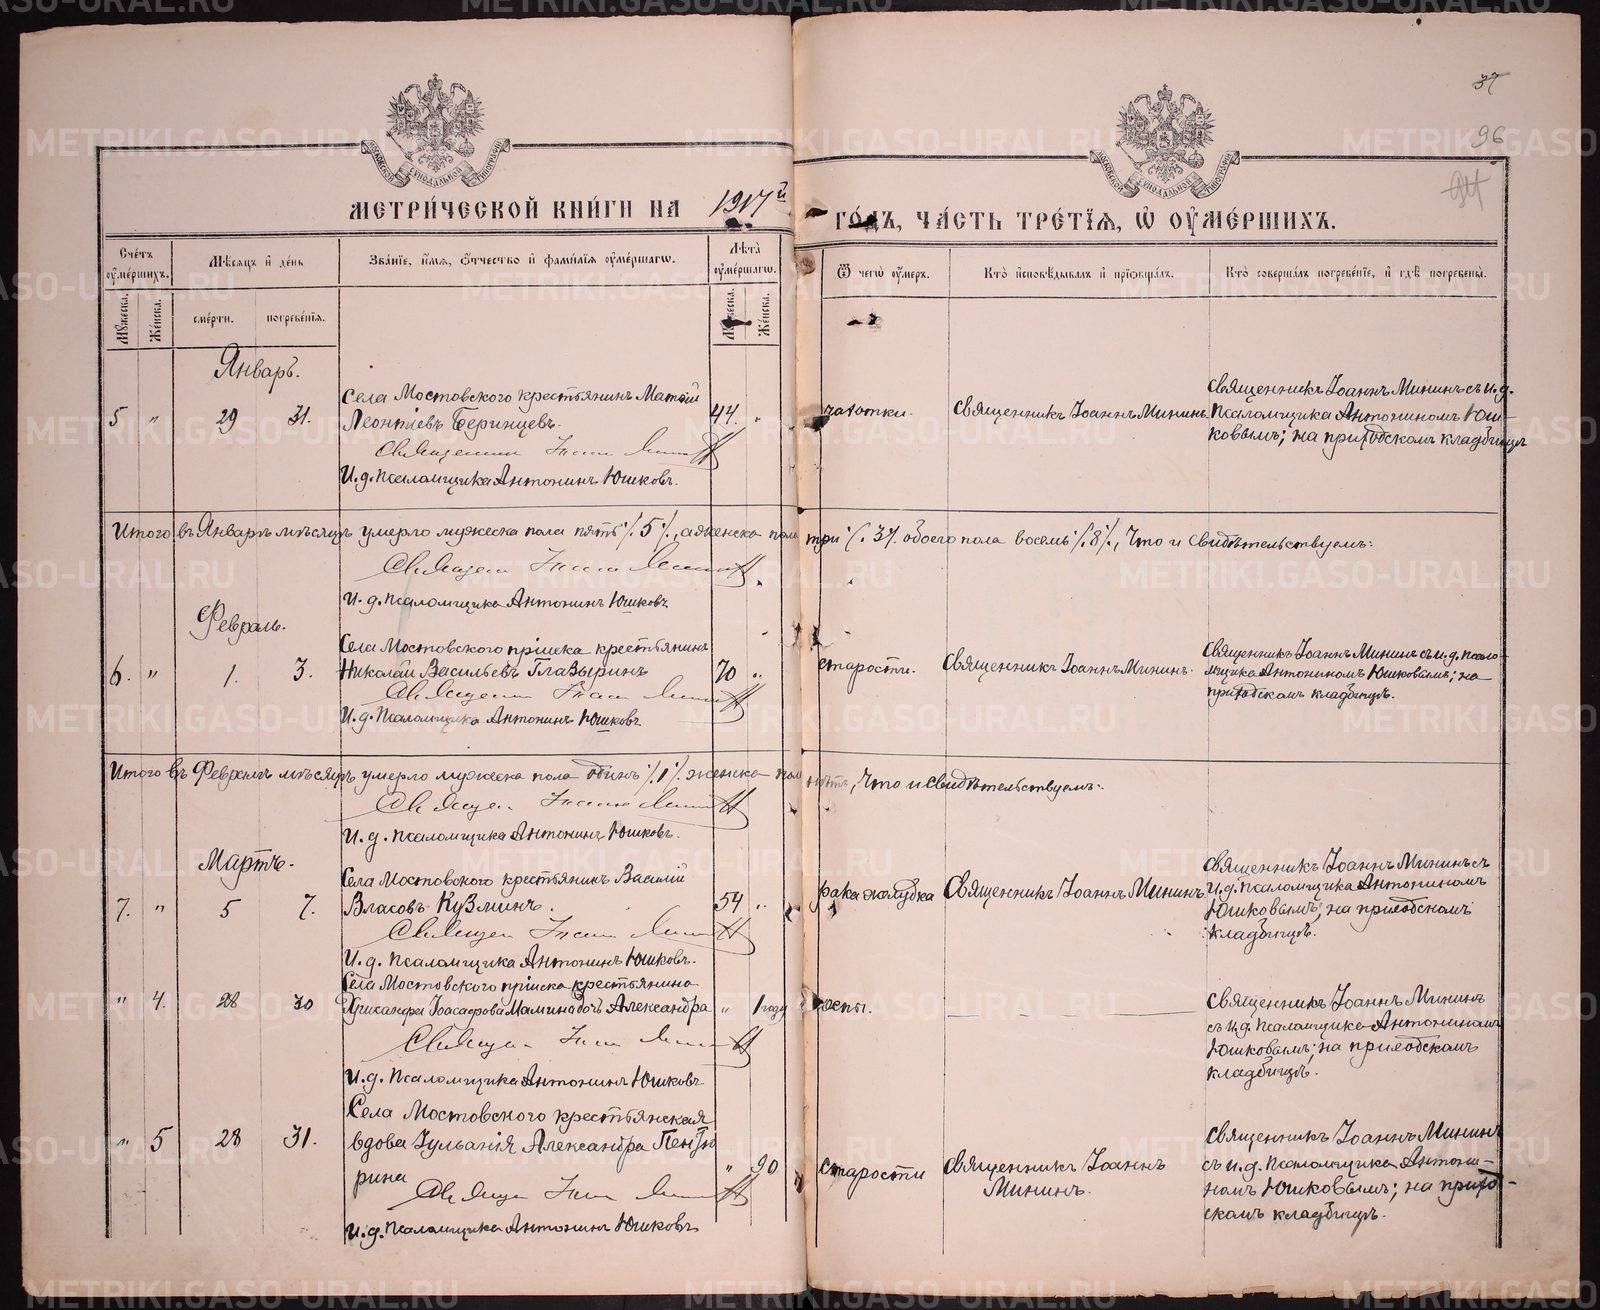 37
96
МОСКОВСКОЙ СѴНОДАЛЬНОЙ ТИПОГРАФІИ
МОСКОВСКОЙ СѴНОДАЛЬНОЙ ТИПОГРАФІИ
МЕТРИ́ЧЕСКОЙ КНИ́ГИ НА 1917й
ГО́ДЪ, ЧА́СТЬ ТРЕ́ТІѦ, Ѡ҆ ОУ҆МЕ́РШИХЪ.
Сче́тъ оу҆ме́ршихъ.
Мѣ́сѧцъ и҆ де́нь
Зва́нїе, и҆́мѧ, ѻ҆́тчество и҆ фами́лїѧ оу҆ме́ршагѡ.
Лѣ́та оу҆ме́ршагѡ.
Ѿ чегѡ̀ оу҆́меръ.
Кто̀ и҆сповѣ́дывалъ и҆ прїѡбща́лъ.
Кто̀ соверша́лъ погребе́нїе, и҆ гдѣ̀ погребены̀.
Мꙋ́жеска.
Же́нска.
сме́рти.
погребе́нїѧ.
Мꙋ́жеска.
Же́нска.
Январь.
5 " 29 31.
Села Мостовского крестьянинъ Матѳій
Леонтіевъ Беринцевъ.
Священникъ Іоаннъ Мининъ
И.д. псаломщика Антонинъ Юшковъ.
44. "
чахотки.
Священникъ Іоаннъ Мининъ.
Священникъ Іоаннъ Мининъ съ и.д.
псаломщика Антониномъ Юш-
ковымъ; на приходскомъ кладбищѣ
Итого въ Январѣ мѣсяцѣ умерло мужеска пола пять /.5/., а женска пола три /.3/. обоего пола восемь /.8/., Что и свидѣтельствуемъ:
Священникъ Іоаннъ Мининъ
И.д. псаломщика Антонинъ Юшковъ
Февраль.
6. " 1. 3.
Села Мостовского пріиска крестьянинъ
Николай Васильевъ Глазыринъ
Священникъ Іоаннъ Мининъ
И.д. псаломщика Антонинъ Юшковъ
70 "
старости.
Священникъ Іоаннъ Мининъ.
Священникъ Іоаннъ Мининъ съ и.д. псало-
мщика Антониномъ Юшковымъ; на
приходскомъ кладбищѣ.
Итого въ Февралѣ мѣсяцѣ умерло мужеска пола одинъ /.1/. женска пола нѣтъ, Что и свидѣтельствуемъ:
Священникъ Іоаннъ Мининъ
И.д. псаломщика Антонинъ Юшковъ.
Мартъ.
7. " 5 7.
Села Мостовского крестьянинъ Василій
Власовъ Кузминъ.
Священникъ Іоаннъ Мининъ
И.д. псаломщика Антонинъ Юшковъ.
54 "
рака желудка
Священникъ Іоаннъ Мининъ
Священникъ Іоаннъ Мининъ съ
и.д. псаломщика Антониномъ
Юшковымъ; на приходскомъ
кладбищѣ.
" 4. 28 30
Села Мостовского пріиска крестьянина
Хрисанфа Іоасафова Мамина дочь Александра
Священникъ Іоаннъ Мининъ
И.д. псаломщика Антонинъ Юшковъ
" 1 году
оспы.
Священникъ Іоаннъ Мининъ
съ и.д. псаломщика Антониномъ
Юшковымъ; на приходскомъ
кладбищѣ.
" 5 28 31.
Села Мостовского крестьянская
вдова Іульанія Александра Пензю
рина
Священникъ Іоаннъ Мининъ
И.д. псаломщика Антонинъ Юшковъ
" 90
старости
Священникъ Іоаннъ
Мининъ.
Священникъ Іоаннъ Мининъ
съ и.д. псаломщика Антони-
номъ Юшковымъ; на прихо-
дскомъ кладбищѣ.
METRIKI.GASO-URAL.RU